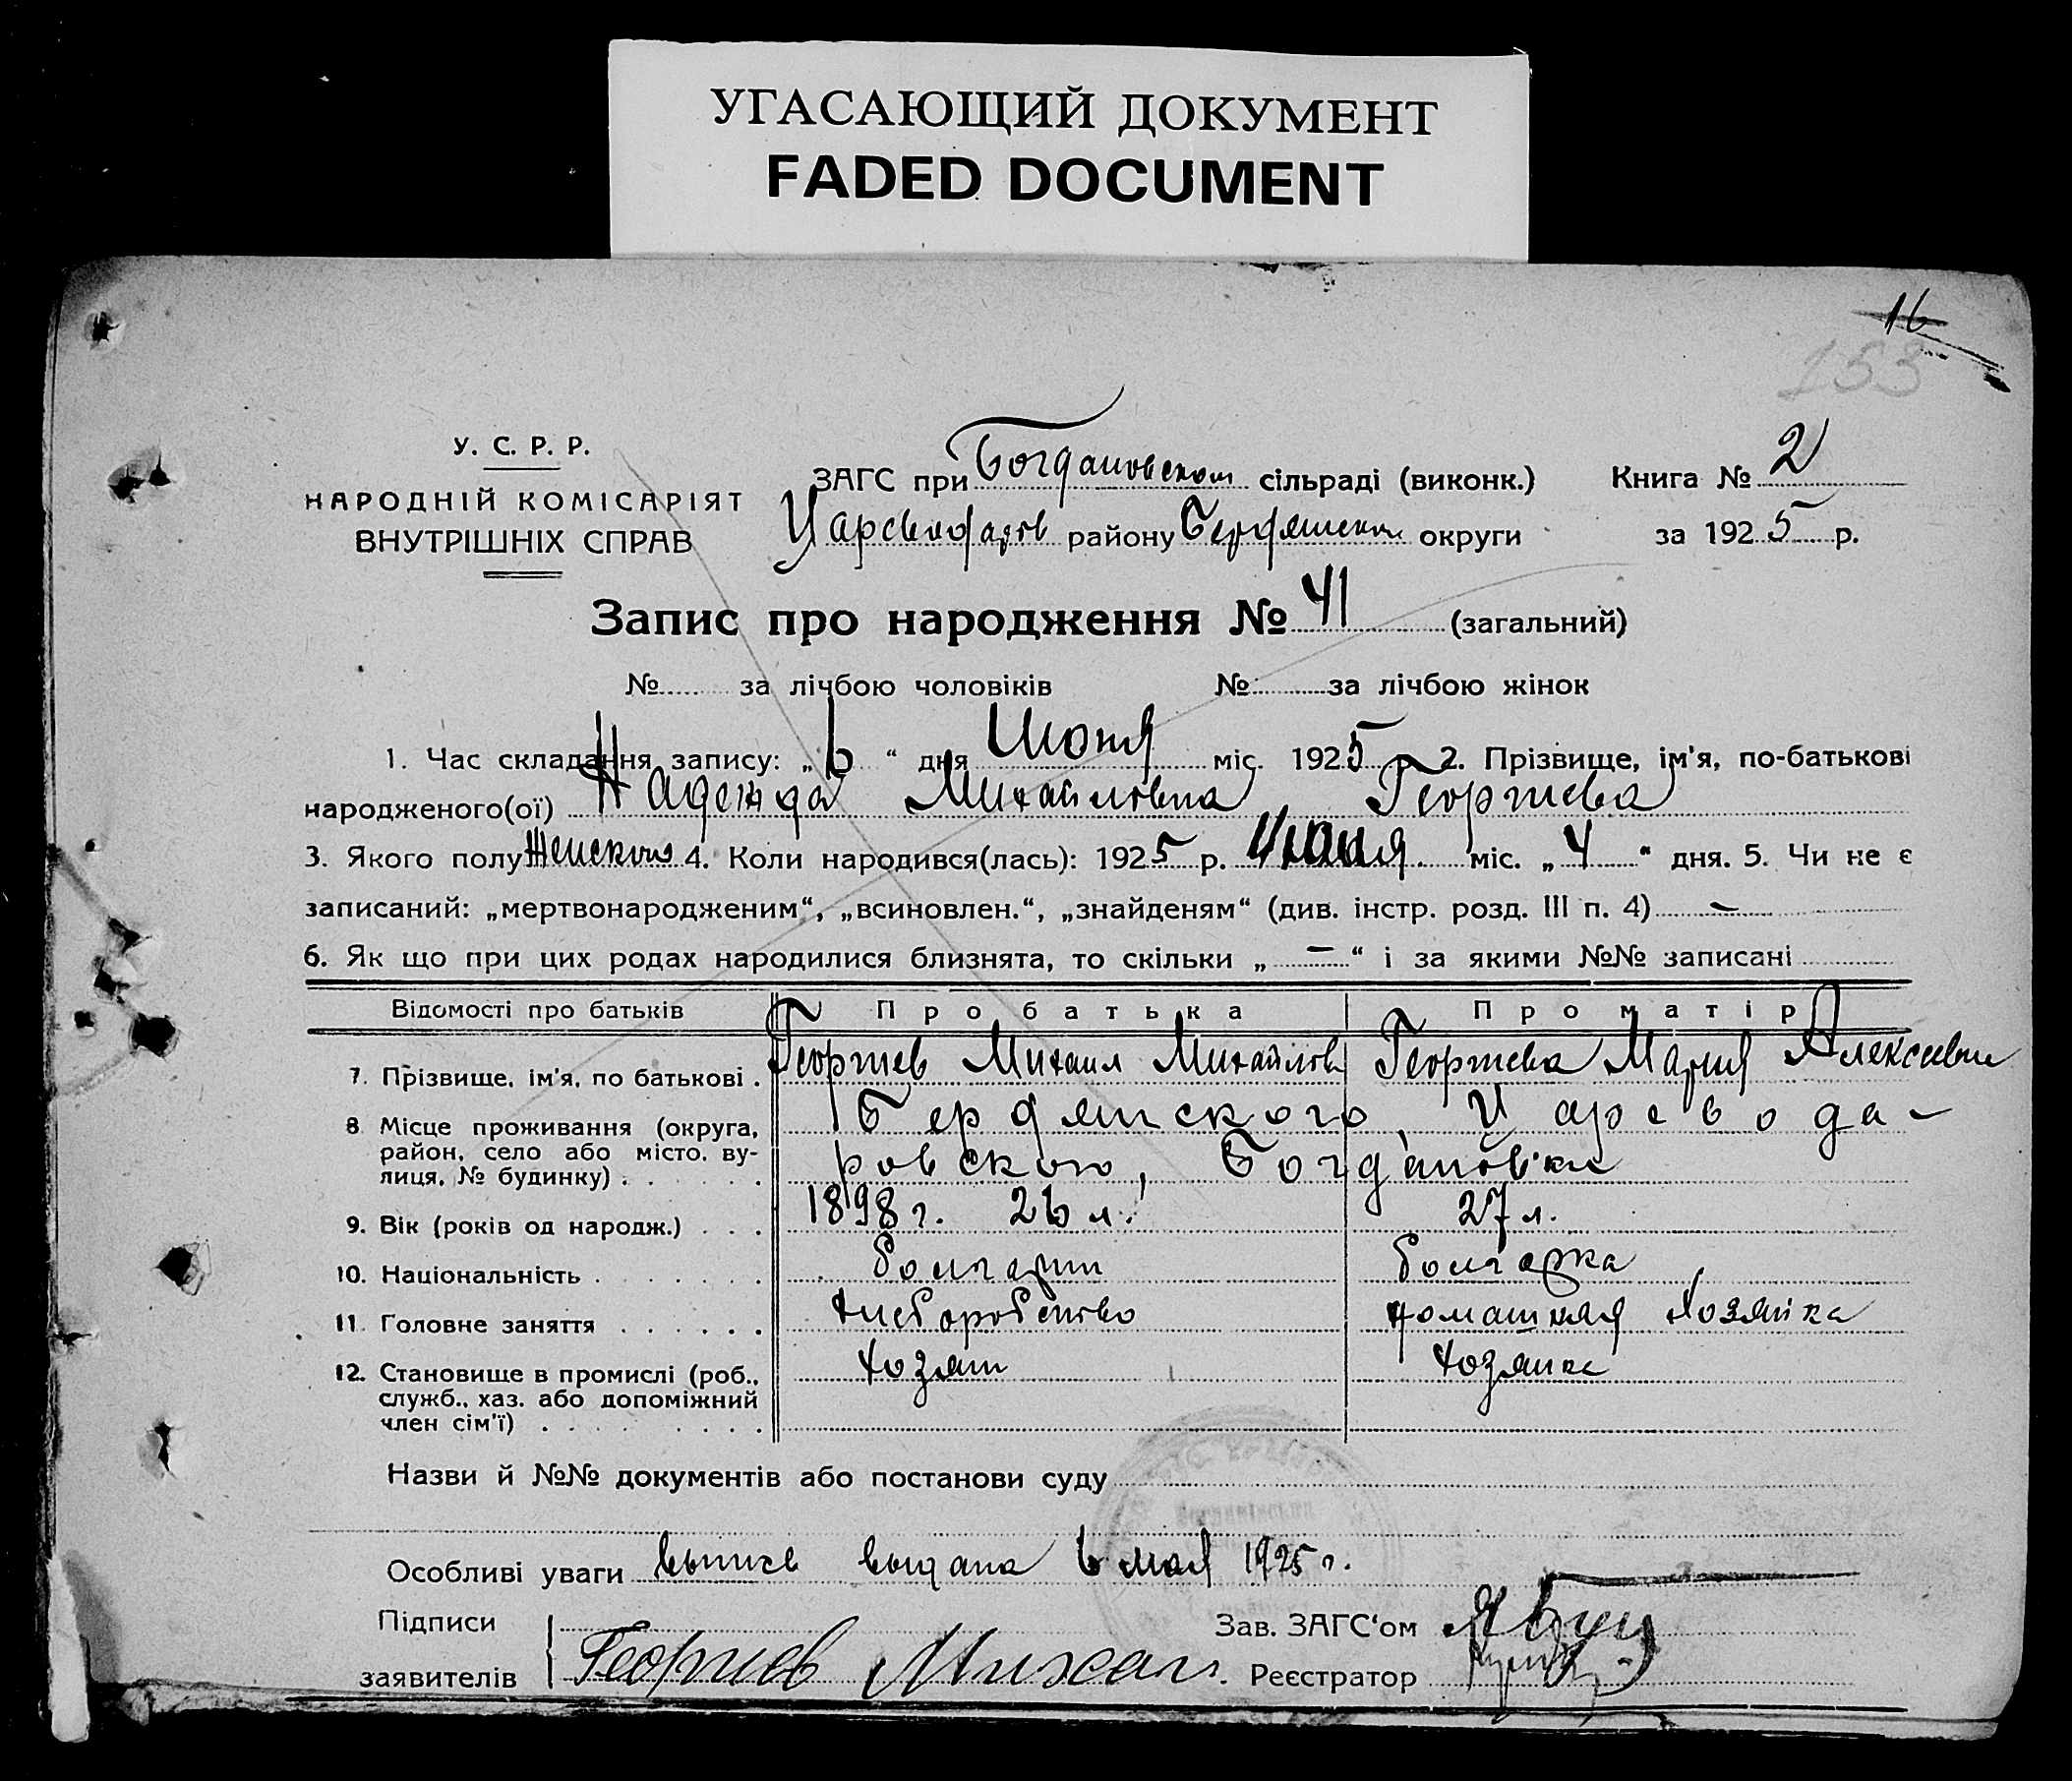 УГАСАЮЩИЙ ДОКУМЕНТ
FADED DOCUMENT
16
153
У. С. Р. Р.
НАРОДНІЙ КОМІСАРІЯТ
ВНУТРІШНІХ СПРАВ
ЗАГС при Богдановском сільраді (виконк.)
району Бердянском округи
Книга № 2
за 1925 р.
Запис про народження № 41 (загальний)
№ за лічбою чоловіків № за лічбою жінок
1. Час складання запису: „6“ дня Июня міс. 1925 р. 2. Прізвище, ім'я, по-батькові
народженого(ої) Надежда Михайловна Георгиева
3. Якого полу Женского 4. Коли народився(лась): 1925 р. Июня міс. „4“ дня. 5. Чи не є
записаний: „мертвонародженим“, „всиновлен.“, „знайденям“ (див. інстр. розд. III п. 4) —
6. Як що при цих родах народилися близнята, то скільки „—“ і за якими №№ записані
Відомості про батьків Про батька Про матір
7. Прізвище, ім'я, по батькові . Георгиев Михаил Михайлов Георгиева Мария Алексеевна
8 Місце проживання (округа, район, село або місто, вулиця, № будинку) . Бердянского, Царевода-
ровского, Богдановка
9. Вік (років од народж.) . . . 1898 г. 26 л. 27 л.
10. Національність . болгарин болгарка
11. Головне заняття . хлеборобство домашняя хозяйка
12. Становище в промислі (роб., служб., хаз. або допоміжний член сім'ї) . хозяин хозяйка
Назви й №№ документів або постанови суду
Особливі уваги выпись выдана 6 мая 1925 г.
Підписи
заявителів Георгиев Михаил.
Зав. ЗАГС‘ом
Реєстратор